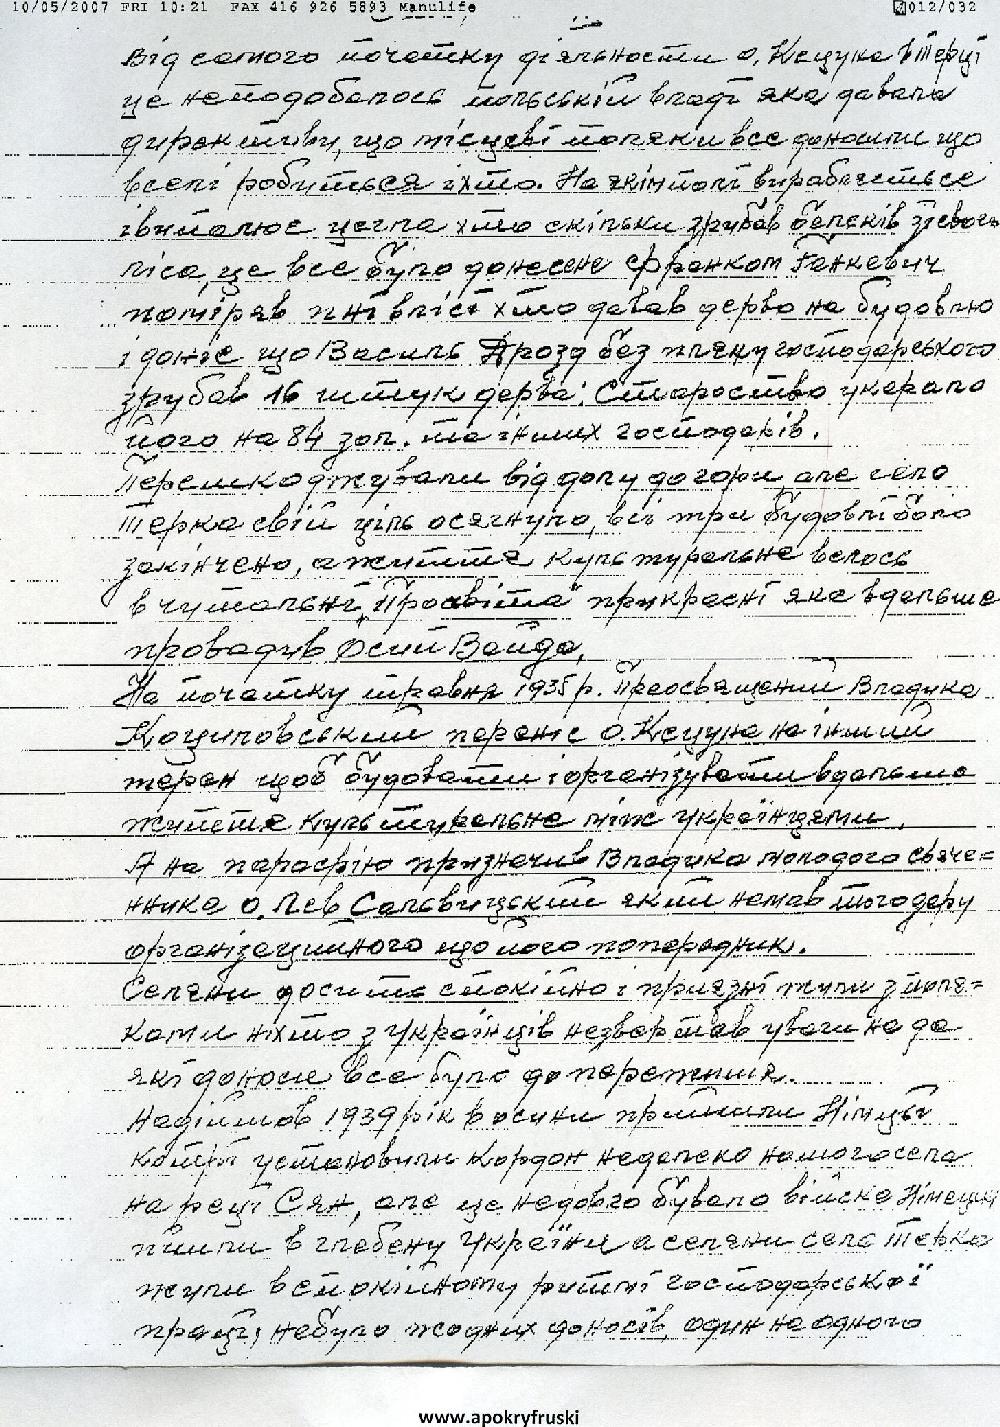 10/05/2007 FRI 10:21 FAX 416 926 5893 Manulife 012/032
Від самого початку діяльности о. Кецука в Терці
це неподобалось польській владі яка давала
директиву, що місцеві поляки все доносили що
вселі робиться іхто.
хто скільки зрубав балеків
ліса, це все було донесене Франком Ганкевич
поміряв пні влісі хто давав дерво на будовлю
і доніс що Василь Дрозд без пляну господарського
зрубав 16 штук дерва. Староство укерало
його на 84 зол. та інших господарів.
Перешкоджували від долу до гори, але село
Терка свій ціль осягнуло, всі три будовлі було
закінчено, а життя културальне велось
в читальні „Просвіта" прикрасні яке вдальше
провадив Осип Вайда,
На початку травня 1935 р. Преосвящений Владика
Коциловський переніс о. Кецуна на інший
терен щоб будовати і організувати вдальше
життя културальне між українцями.
А на парафію призначив Владика молодого свяче=
нника о. Лев Салевицький який немав того дару
організаційного що його попередник.
Селяни досить спокійно і приязні жили з поля=
ками ніхто з українців незвертав уваги на да
які доноси все було до пережиття.
Надійшов 1939 рік восини прийшли Німці
Котрі установили Кордон недалеко нашого села
на реці Сян, але це недовго бувало війска Німецкі
пішли в глебену України а селяни села Терка
жили вспокійному ритмі господарської
праці, небуло жодних доносів, один на одного
www.apokryfruski